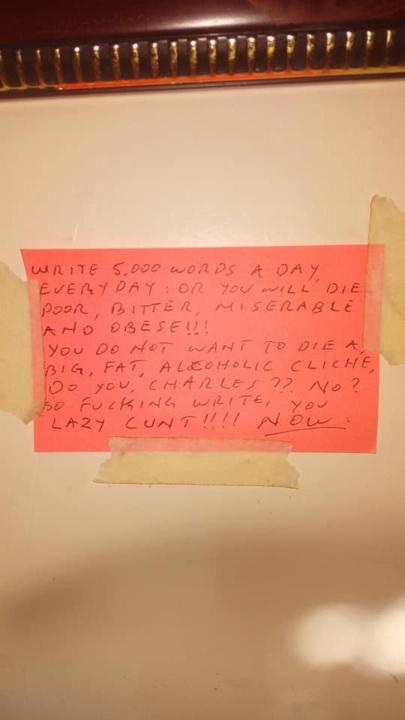 WRITE 5,000 WORDS A DAY,
EVERY DAY : OR YOU WILL DIE
POOR, BITTER, MISERABLE
AND OBESE!!!
YOU DO NOT WANT TO DIE A
BIG, FAT, ALCOHOLIC CLICHÉ,
DO YOU, CHARLES?? NO?
SO FUCKING WRITE, YOU
LAZY CUNT!!!! NOW.